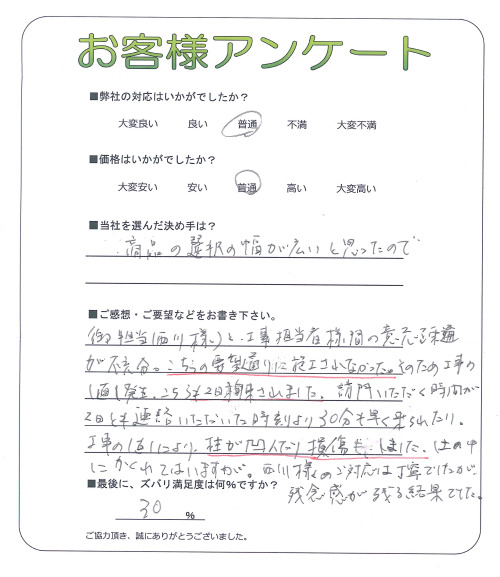 お客様アンケート
■弊社の対応はいかがでしたか?
大変良い 良い 普通 不満 大変不満
■価格はいかがでしたか?
大変安い 安い 普通 高い 大変高い
■当社を選んだ決め手は?
商品の選択の幅が広いと思ったので
■ご感想・ご要望などをお書き下さい。
御担当(西川様)と、工事担当者様間の意志疎通
が不充分。こちらの要望通りに施工されなかった。そのため工事の
直し発生、こちらも2日拘束されました。訪問いただく時間が
2日とも連絡いただいた時刻より30分も早く来られたり。
工事の直しにより、柱が凹んだり損傷も、しました。(土の中
にかくれてはいますが。西川様のご対応は丁寧でしたが
残念感が残る結果でした。
■最後に、ズバリ満足度は何%ですか?
30 %
ご協力頂き、誠にありがとうございました。